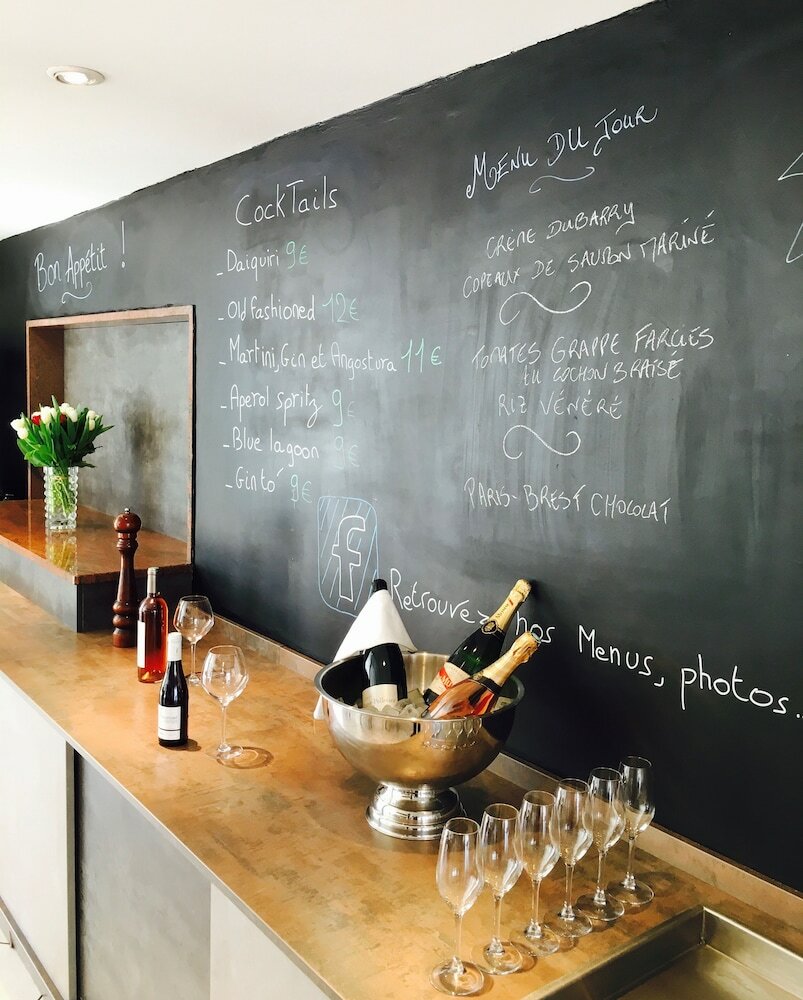 Bon Appétit !
CockTails
- Daiquiri 9€
- Old fashioned 12€
- Martini, Gin et Angostura 11€
- Aperol spritz 9€
- Blue lagoon 9€
- Gin to' 9€
MENU DU JOUR
CRÈME DUBARRY
COPEAUX DE SAUMON MARINÉ
TOMATES GRAPPE FARCIES
AU COCHON BRAISÉ
RIZ VÉNÉRÉ
PARIS-BREST CHOCOLAT
f
Retrouvez nos Menus, photos...